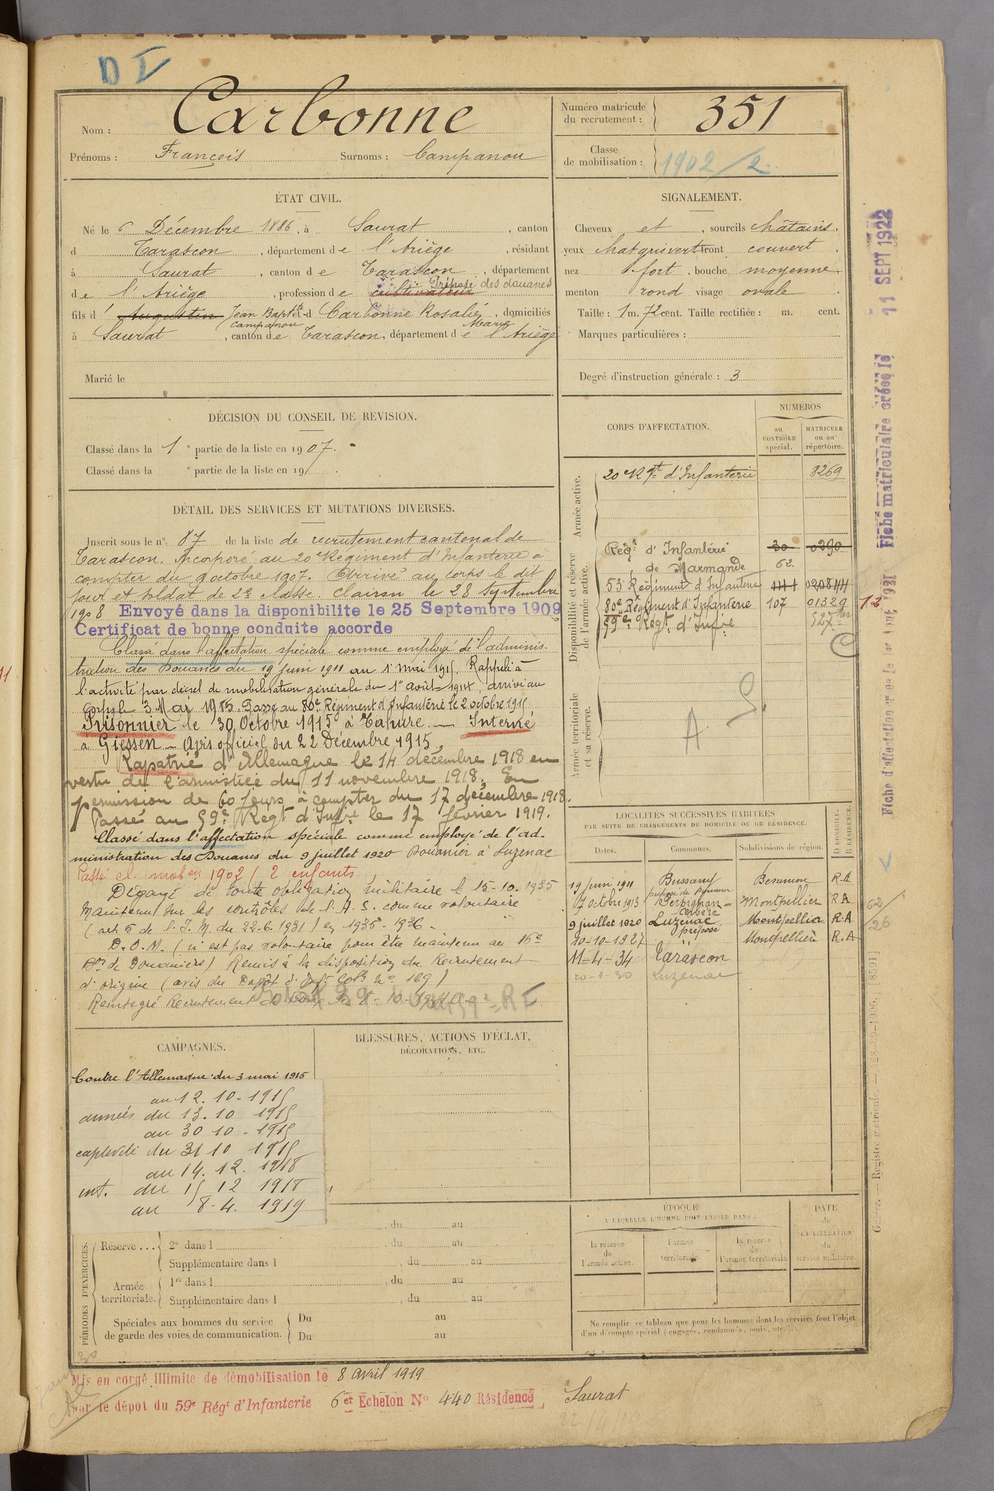 D I
Nom : Carbonne
Prénoms : François Surnoms : Campanou
Numéro matricule du recrutement : 351
Classe de mobilisation : 1902/2
ÉTAT CIVIL.
Né le 6 Décembre 1886, à Saurat, canton
d Tarascon, département de l'Ariège, résidant
à Saurat, canton de Tarascon, département
de l'Ariège, profession de cultivateur Préposé des douanes
fils d' Augustin Jean Bapte Campanou et d Carbonne Rosalie Marie, domiciliés
à Saurat, canton de Tarascon, département de l'Ariège
Marié le
SIGNALEMENT.
Cheveux et, sourcils chatains,
yeux chat gris vert front couvert,
nez fort, bouche moyenne,
menton rond visage ovale
Taille : 1 m. 72 cent. Taille rectifiée : m. cent.
Marques particulières :
Degré d'instruction générale : 3
DÉCISION DU CONSEIL DE REVISION.
Classé dans la 1e partie de la liste en 1907.
Classé dans la e partie de la liste en 19 .
CORPS D'AFFECTATION.
NUMÉROS
au CONTRÔLE spécial.
MATRICULE ou au répertoire.
Armée active.
20e Rgt d'Infanterie 8269
Disponibilité et réserve de l'armée active.
Régt d'Infanterie 30 0390
de Marmande 62.
53e Régiment d'Infanterie
80e Régiment d'Infanterie 107 01329 12
59e Régt d'Infie
Armée territoriale et sa réserve.
A
DÉTAIL DES SERVICES ET MUTATIONS DIVERSES.
Inscrit sous le n° 87 de la liste de recrutement cantonal de
Tarascon. Incorporé au 20e Régiment d'Infanterie à
compter du 9 octobre 1907. Arrivé au corps le dit
jour et soldat de 2e classe. Clairon le 28 Septembre
1908 Envoyé dans la disponibilite le 25 Septembre 1909
Certificat de bonne conduite accorde
Classé dans l'affectation spéciale comme employé de l'adminis-
tration des Douanes du 19 juin 1911 au 1er mai 1915. Rappelé à
l'activité par décret de mobilisation générale du 1er août 1914, arrivé au
corps le 3 Mai 1915. Passé au 80e Régiment d'Infanterie le 2 octobre 1915.
Prisonnier le 30 Octobre 1915 à Tahure — Interné
à Giessen — Avis officiel du 22 Décembre 1915.
Rapatrié d'Allemagne le 14 décembre 1918 en
vertu de l'armistice du 11 novembre 1918. En
permission de 60 jours à compter du 17 décembre 1918.
Passé au 59e Régt d'Infie le 17 février 1919.
Classé dans l'affectation spéciale comme employé de l'ad-
ministration des Douanes du 9 juillet 1920 Douanier à Luzenac
Passé cl. mob en 1902/2 enfants
Dégagé de toute obligation militaire le 15-10-1935
Maintenu sur les contrôles de l'A.S. comme volontaire
(art 5 de l'I.M. du 22-6-1931) en 1935-1936.
D.O.M. (n'est pas volontaire pour être maintenu au 16e
Bon de Douaniers) Remis à la disposition du Recrutement
d'origine (avis du Dépôt d'Inft Colle n° 169)
Reintegré Recrutement
LOCALITÉS SUCCESSIVES HABITÉES
PAR SUITE DE CHANGEMENTS DE DOMICILE OU DE RÉSIDENCE.
Dates. Communes. Subdivisions de région. D DOMICILE. R RÉSIDENCE.
19 juin 1911 Bussang Besançon R.A
17 octobre 1913 Perpignan - Cerbère Montpellier R.A
9 juillet 1920 Luzenac préposé Montpellier R.A
20-10-1927 Montpellier R.A
11-4-34 Tarascon
20-1-30 Luzenac
CAMPAGNES.
Contre l'Allemagne du 3 mai 1915
au 12.10-1915
armées du 13.10 1915
au 30 10-1915
captivité du 31 10 1915
au 14.12. 1918
int. du 15 12 1918
au 8-4. 1919
BLESSURES, ACTIONS D'ÉCLAT,
DÉCORATIONS, ETC.
PÉRIODES D'EXERCICES.
Réserve ... 2e dans l du au
Supplémentaire dans l du au
Armée territoriale. 1re dans l du au
Supplémentaire dans l du au
Spéciales aux hommes du service de garde des voies de communication. Du au
Du au
ÉPOQUE
À LAQUELLE L'HOMME DOIT PASSER DANS
la réserve de l'armée active.
l'armée territoriale.
la réserve de l'armée territoriale
DATE de LA LIBÉRATION du service militaire.
Ne remplir ce tableau que pour les hommes dont les services font l'objet
d'un décompte spécial (engagés, condamnés, omis, etc.)
Mis en congé illimite de démobilisation le 8 avril 1919
Par le dépot du 59e Régt d'Infanterie 6er Echelon N° 440 Résidence Saurat
Fiche matriculaire créée le 11 SEPT 1922
62/26